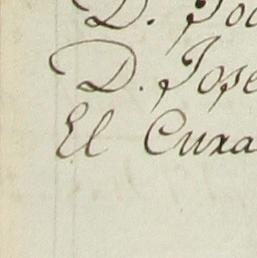 D. Jo
D. Jose
El Cura